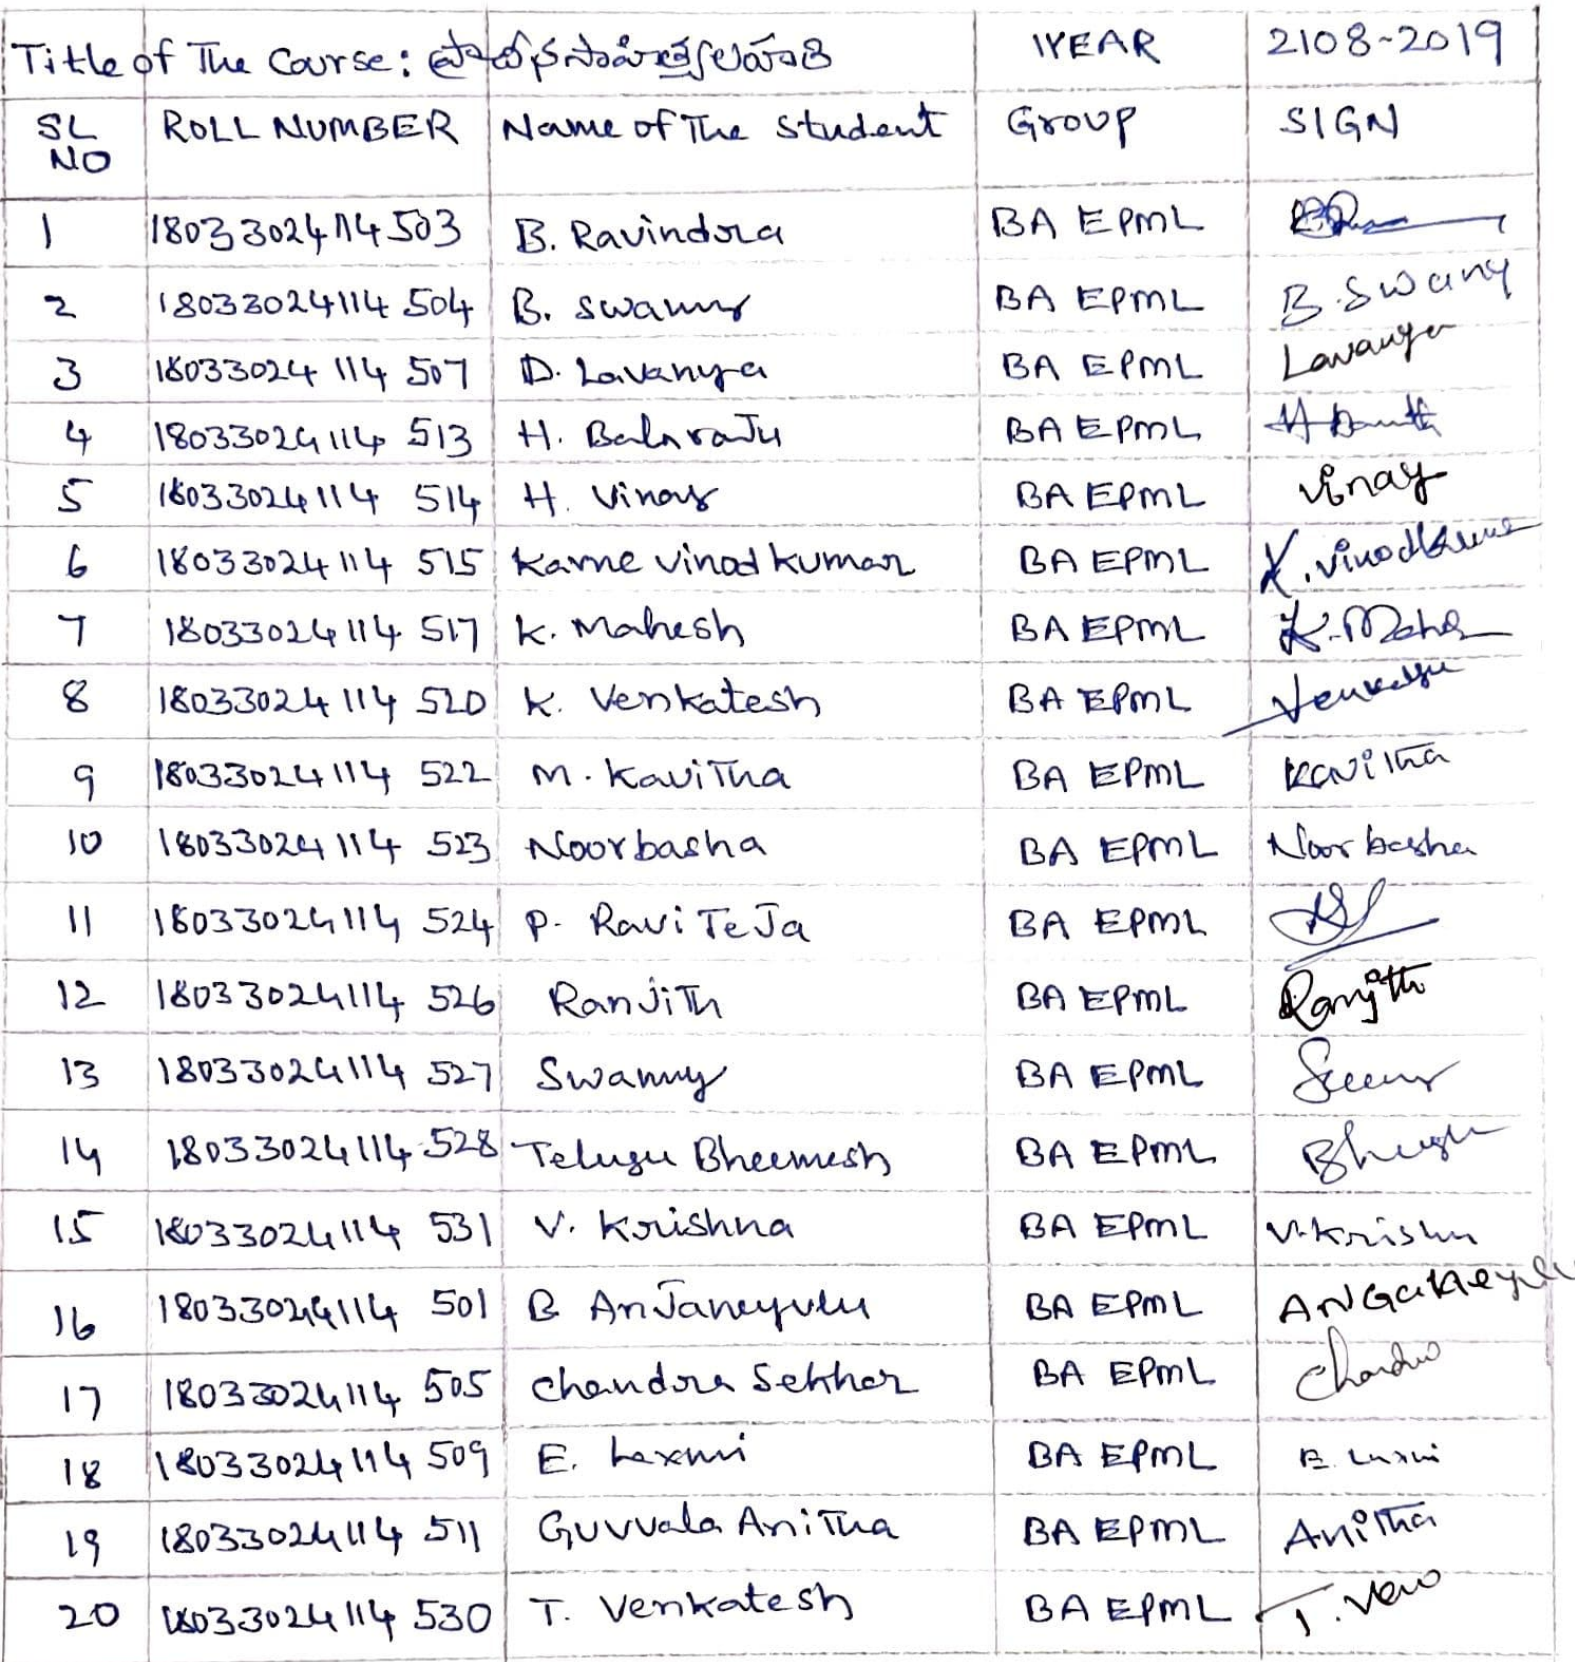 Title of The Course: ప్రాచీన సాహిత్యలహరి IYEAR 2108-2019
SL NO ROLL NUMBER Name of The Student Group SIGN
1 18033024114503 B. Ravindra BA EPML
2 18033024114 504 B. Swamy BA EPML B. Swamy
3 18033024 114 507 D. Lavanya BA EPML Lavanya
4 18033024114 513 H. BalaraJu BA EPML
5 18033024114 514 H. Vinay BA EPML Vinay
6 18033024114 515 Karne vinod kumar BA EPML K. Vinodkumar
7 18033024114 517 K. Mahesh BA EPML K. Mahesh
8 18033024114 520 K. Venkatesh BA EPML Venkatesh
9 18033024114 522 M. Kavitha BA EPML Kavitha
10 18033024114 523 Noorbasha BA EPML Noor basha
11 18033024114 524 P. Ravi TeJa BA EPML
12 18033024114 526 RanJith BA EPML Ranjith
13 18033024114 527 Swamy BA EPML
14 18033024114 528 Telugu Bheemesh BA EPML
15 18033024114 531 V. Krishna BA EPML V. Krishn
16 18033024114 501 B AnJaneyulu BA EPML
17 18033024114 505 Chandra Sekhar BA EPML
18 18033024114 509 E. Laxmi BA EPML E. Laxmi
19 18033024114 511 Guvvala Anitha BA EPML Anitha
20 18033024114 530 T. Venkatesh BA EPML